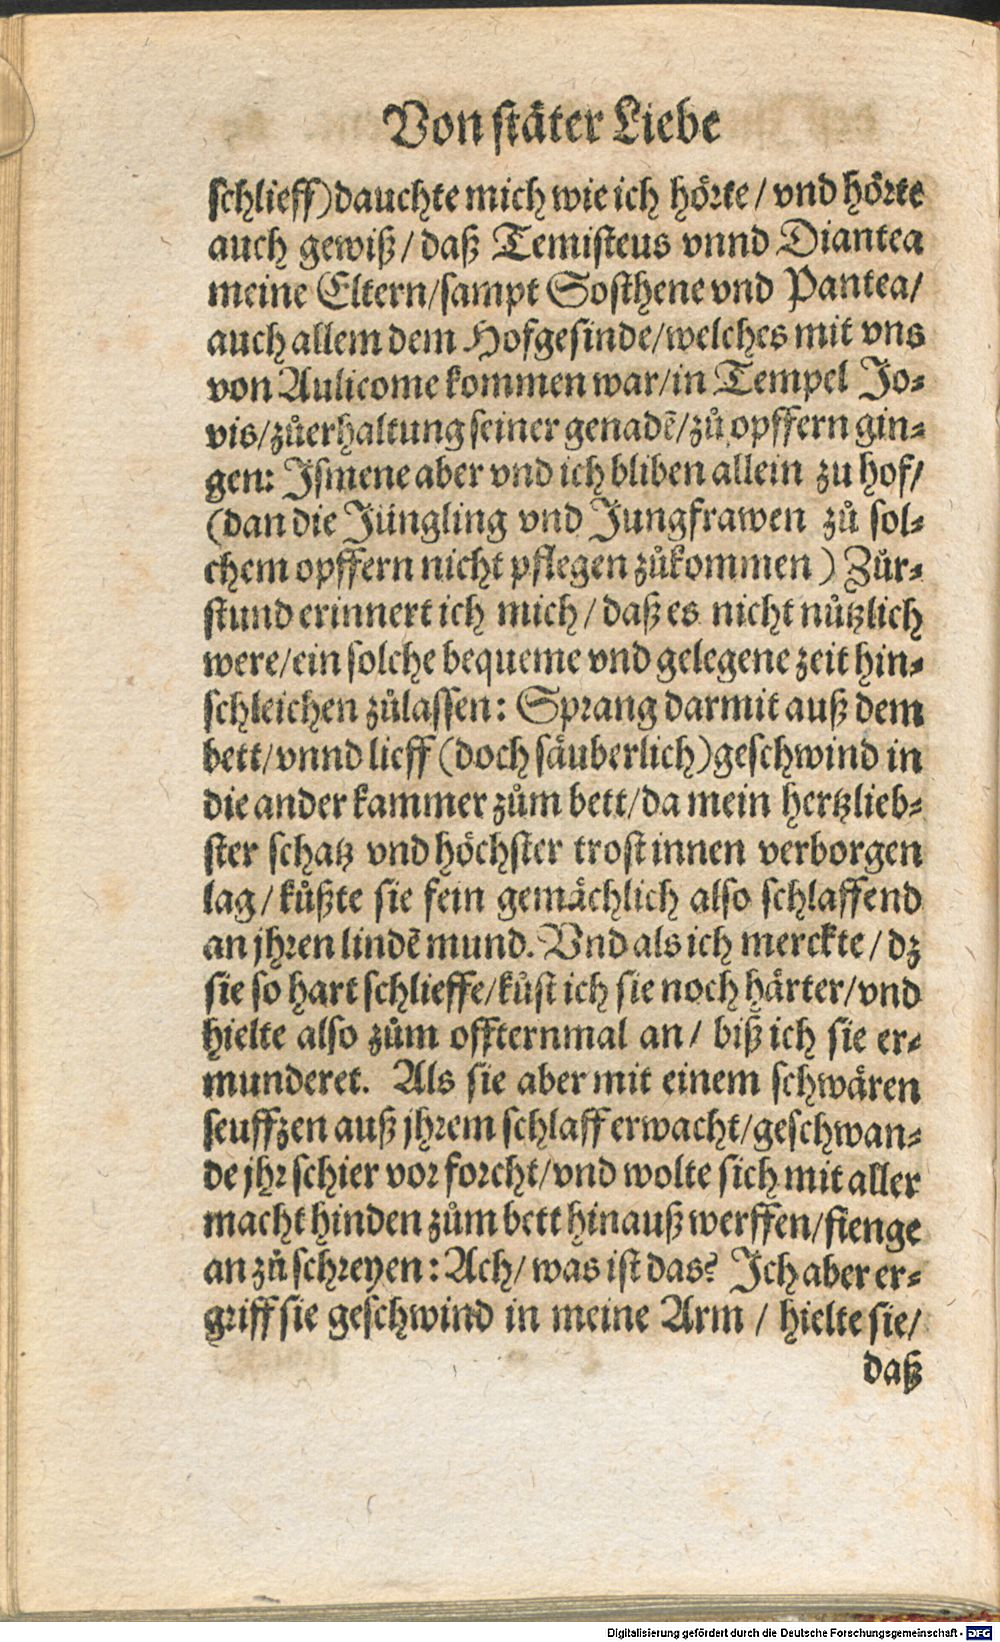 Von ſtäter Liebe
ſchlieff) dauchte mich wie ich hörte / vnd hörte
auch gewiß / daß Temiſteus vnnd Diantea
meine Eltern / ſampt Soſthene vnd Pantea /
auch allem dem Hofgeſinde / welches mit vns
von Aulicome kommen war / in Tempel Jo⸗
vis / zůerhaltung ſeiner genadẽ / zů opffern gin⸗
gen: Iſmene aber vnd ich bliben allein zu hof /
(dan die Jüngling vnd Jungfrawen zů ſol⸗
chem opffern nicht pflegen zůkommen) Zůr⸗
ſtund erinnert ich mich / daß es nicht nůtzlich
were / ein ſolche bequeme vnd gelegene zeit hin⸗
ſchleichen zůlaſſen: Sprang darmit auß dem
bett / vnnd lieff (doch ſäuberlich) geſchwind in
die ander kammer zům bett / da mein hertzlieb⸗
ſter ſchatz vnd höchſter troſt innen verborgen
lag / kůßte ſie fein gemächlich alſo ſchlaffend
an jhren lindẽ mund. Vnd als ich merckte / dz
ſie ſo hart ſchlieffe / kůſt ich ſie noch härter / vnd
hielte alſo zům offternmal an / biß ich ſie er⸗
munderet. Als ſie aber mit einem ſchwären
ſeuffzen auß jhrem ſchlaff erwacht / geſchwan⸗
de jhr ſchier vor forcht / vnd wolte ſich mit aller
macht hinden zům bett hinauß werffen / fienge
an zů ſchreyen: Ach / was iſt das? Ich aber er⸗
griff ſie geſchwind in meine Arm / hielte ſie /
daß
Digitalisierung gefördert durch die Deutsche Forschungsgemeinschaft - DFG